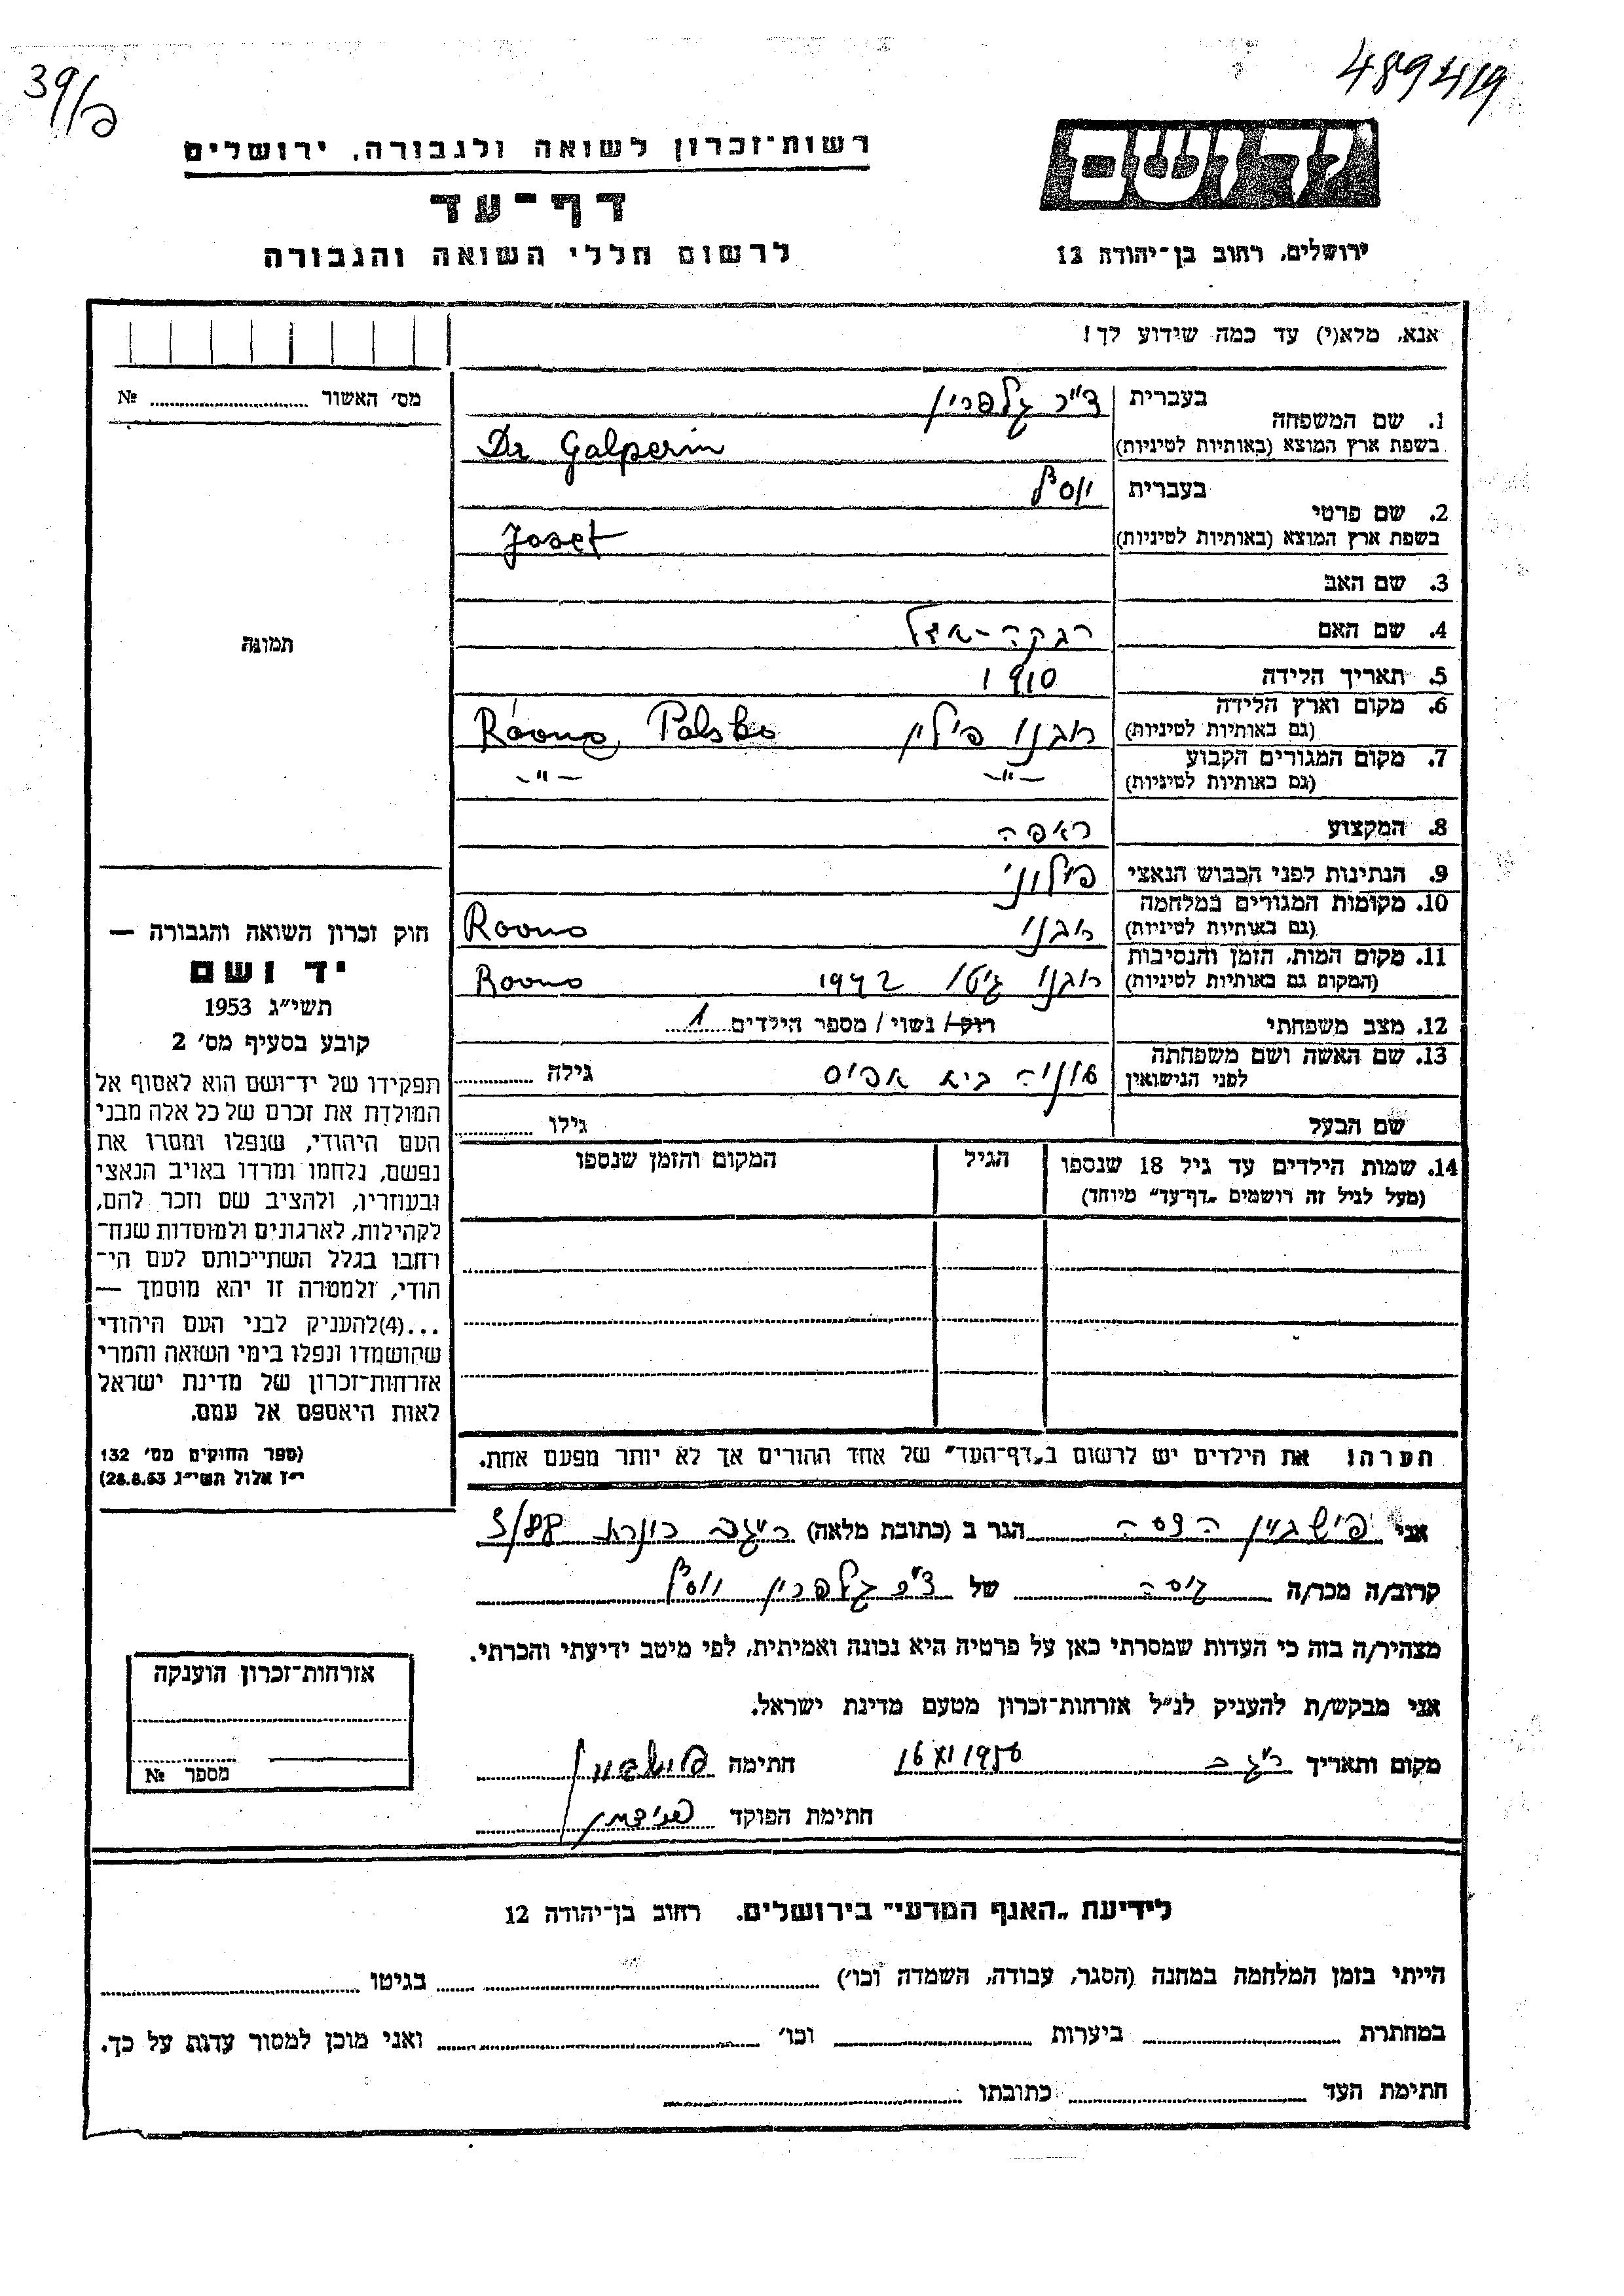 39/פ
489419
ידושם
ירושלים, רחוב בן־יהודה 12
רשות־זכרון לשואה ולגבורה, ירושלים
דף־עד
לרשום חללי השואה והגבורה
אנא, מלא(י) עד כמה שידוע לך!
1. שם המשפחה
בעברית ד"ר גלפרין
בשפת ארץ המוצא (באותיות לטיניות) Dr Galperin
2. שם פרטי
בעברית יוסף
בשפת ארץ המוצא (באותיות לטיניות) Josef
3. שם האב
4. שם האם רבקה-אדל
5. תאריך הלידה 1910
6. מקום וארץ הלידה רובנו פולין Równo, Polska
(גם באותיות לטיניות)
7. מקום המגורים הקבוע -"- -"-
(גם באותיות לטיניות)
8. המקצוע רופא
9. הנתינות לפני הכבוש הנאצי פולוני
10. מקומות המגורים במלחמה רובנו Rowno
(גם באותיות לטיניות)
11. מקום המות, הזמן והנסיבות רובנו גיטו 1942 Rowno
(המקום גם באותיות לטיניות)
12. מצב משפחתי רוק/ נשוי/ מספר הילדים 1
13. שם האשה ושם משפחתה סוניה גילה
לפני הנישואין
שם הבעל גילו
14. שמות הילדים עד גיל 18 שנספו הגיל המקום והזמן שנספו
(מעל לגיל זה רושמים „דף־עד" מיוחד)
הערה! את הילדים יש לרשום ב„דף־העד" של אחד ההורים אך לא יותר מפעם אחת.
אני פישביין הדסה הגר ב (כתובת מלאה) 3/88
קרוב/ה מכר/ה גיסה של ד"ר גלפרין יוסף
מצהיר/ה בזה כי העדות שמסרתי כאן על פרטיה היא נכונה ואמיתית, לפי מיטב ידיעתי והכרתי.
אני מבקש/ת להעניק לנ"ל אזרחות־זכרון מטעם מדינת ישראל.
מקום ותאריך 16 XI 1956 חתימה
חתימת הפוקד
מס׳ האשור № 
תמונה
חוק זכרון השואה והגבורה —
יד ושם
תשי"ג 1953
קובע בסעיף מס׳ 2
תפקידו של יד־ושם הוא לאסוף אל
המולדת את זכרם של כל אלה מבני
העם היהודי, שנפלו ומסרו את
נפשם, נלחמו ומרדו באויב הנאצי
ובעוזריו, ולהציב שם וזכר להם,
לקהילות, לארגונים ולמוסדות שנח־
רחבו בגלל השתייכותם לעם הי־
הודי, ולמטרה זו יהא מוסמך —
...(4)להעניק לבני העם היהודי
שהושמדו ונפלו בימי השואה והמרי
אזרחות־זכרון של מדינת ישראל
לאות היאספם אל עמם.
(ספר החוקים מס׳ 132
י"ז אלול תשי"ג 28.8.53)
אזרחות־זכרון הוענקה
מספר №
לידיעת „האגף המדעי" בירושלים, רחוב בן־יהודה 12
הייתי בזמן המלחמה במחנה (הסגר, עבודה, השמדה וכו׳) בגיטו
במחתרת ביערות וכו׳ ואני מוכן למסור עדות על כך.
חתימת העד כתובתו